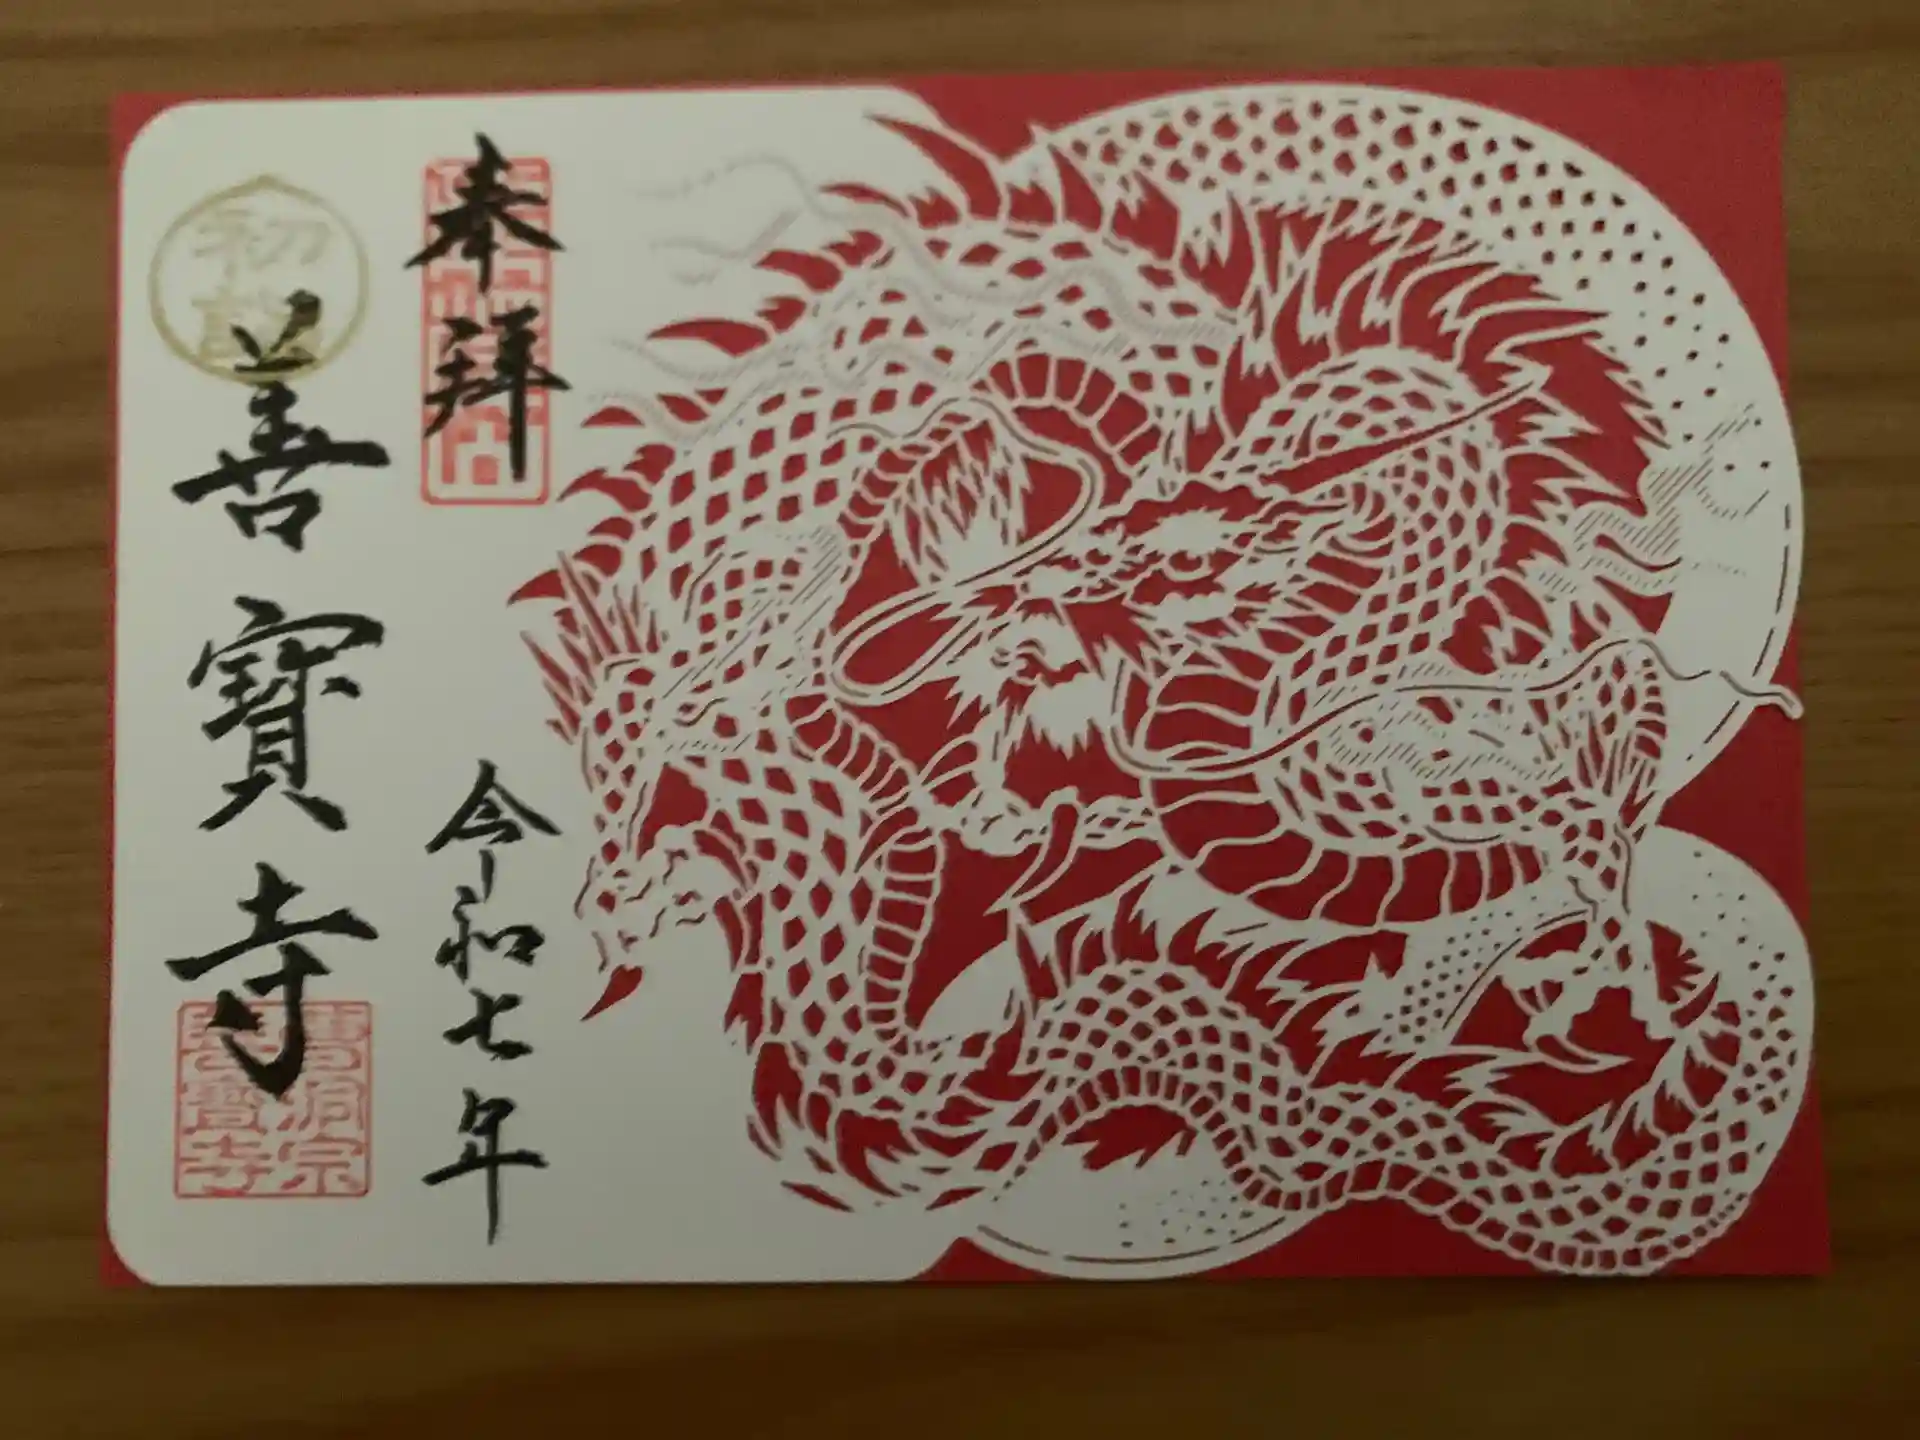 奉拝
令和七年
初詣
善寳寺
曹洞宗
善寳寺